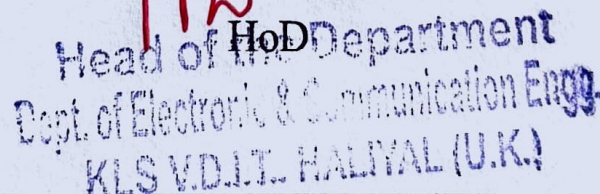 HoD
Head of the Department
Dept. of Electronic & Communication Engg.
KLS V.D.I.T., HALIYAL (U.K.)